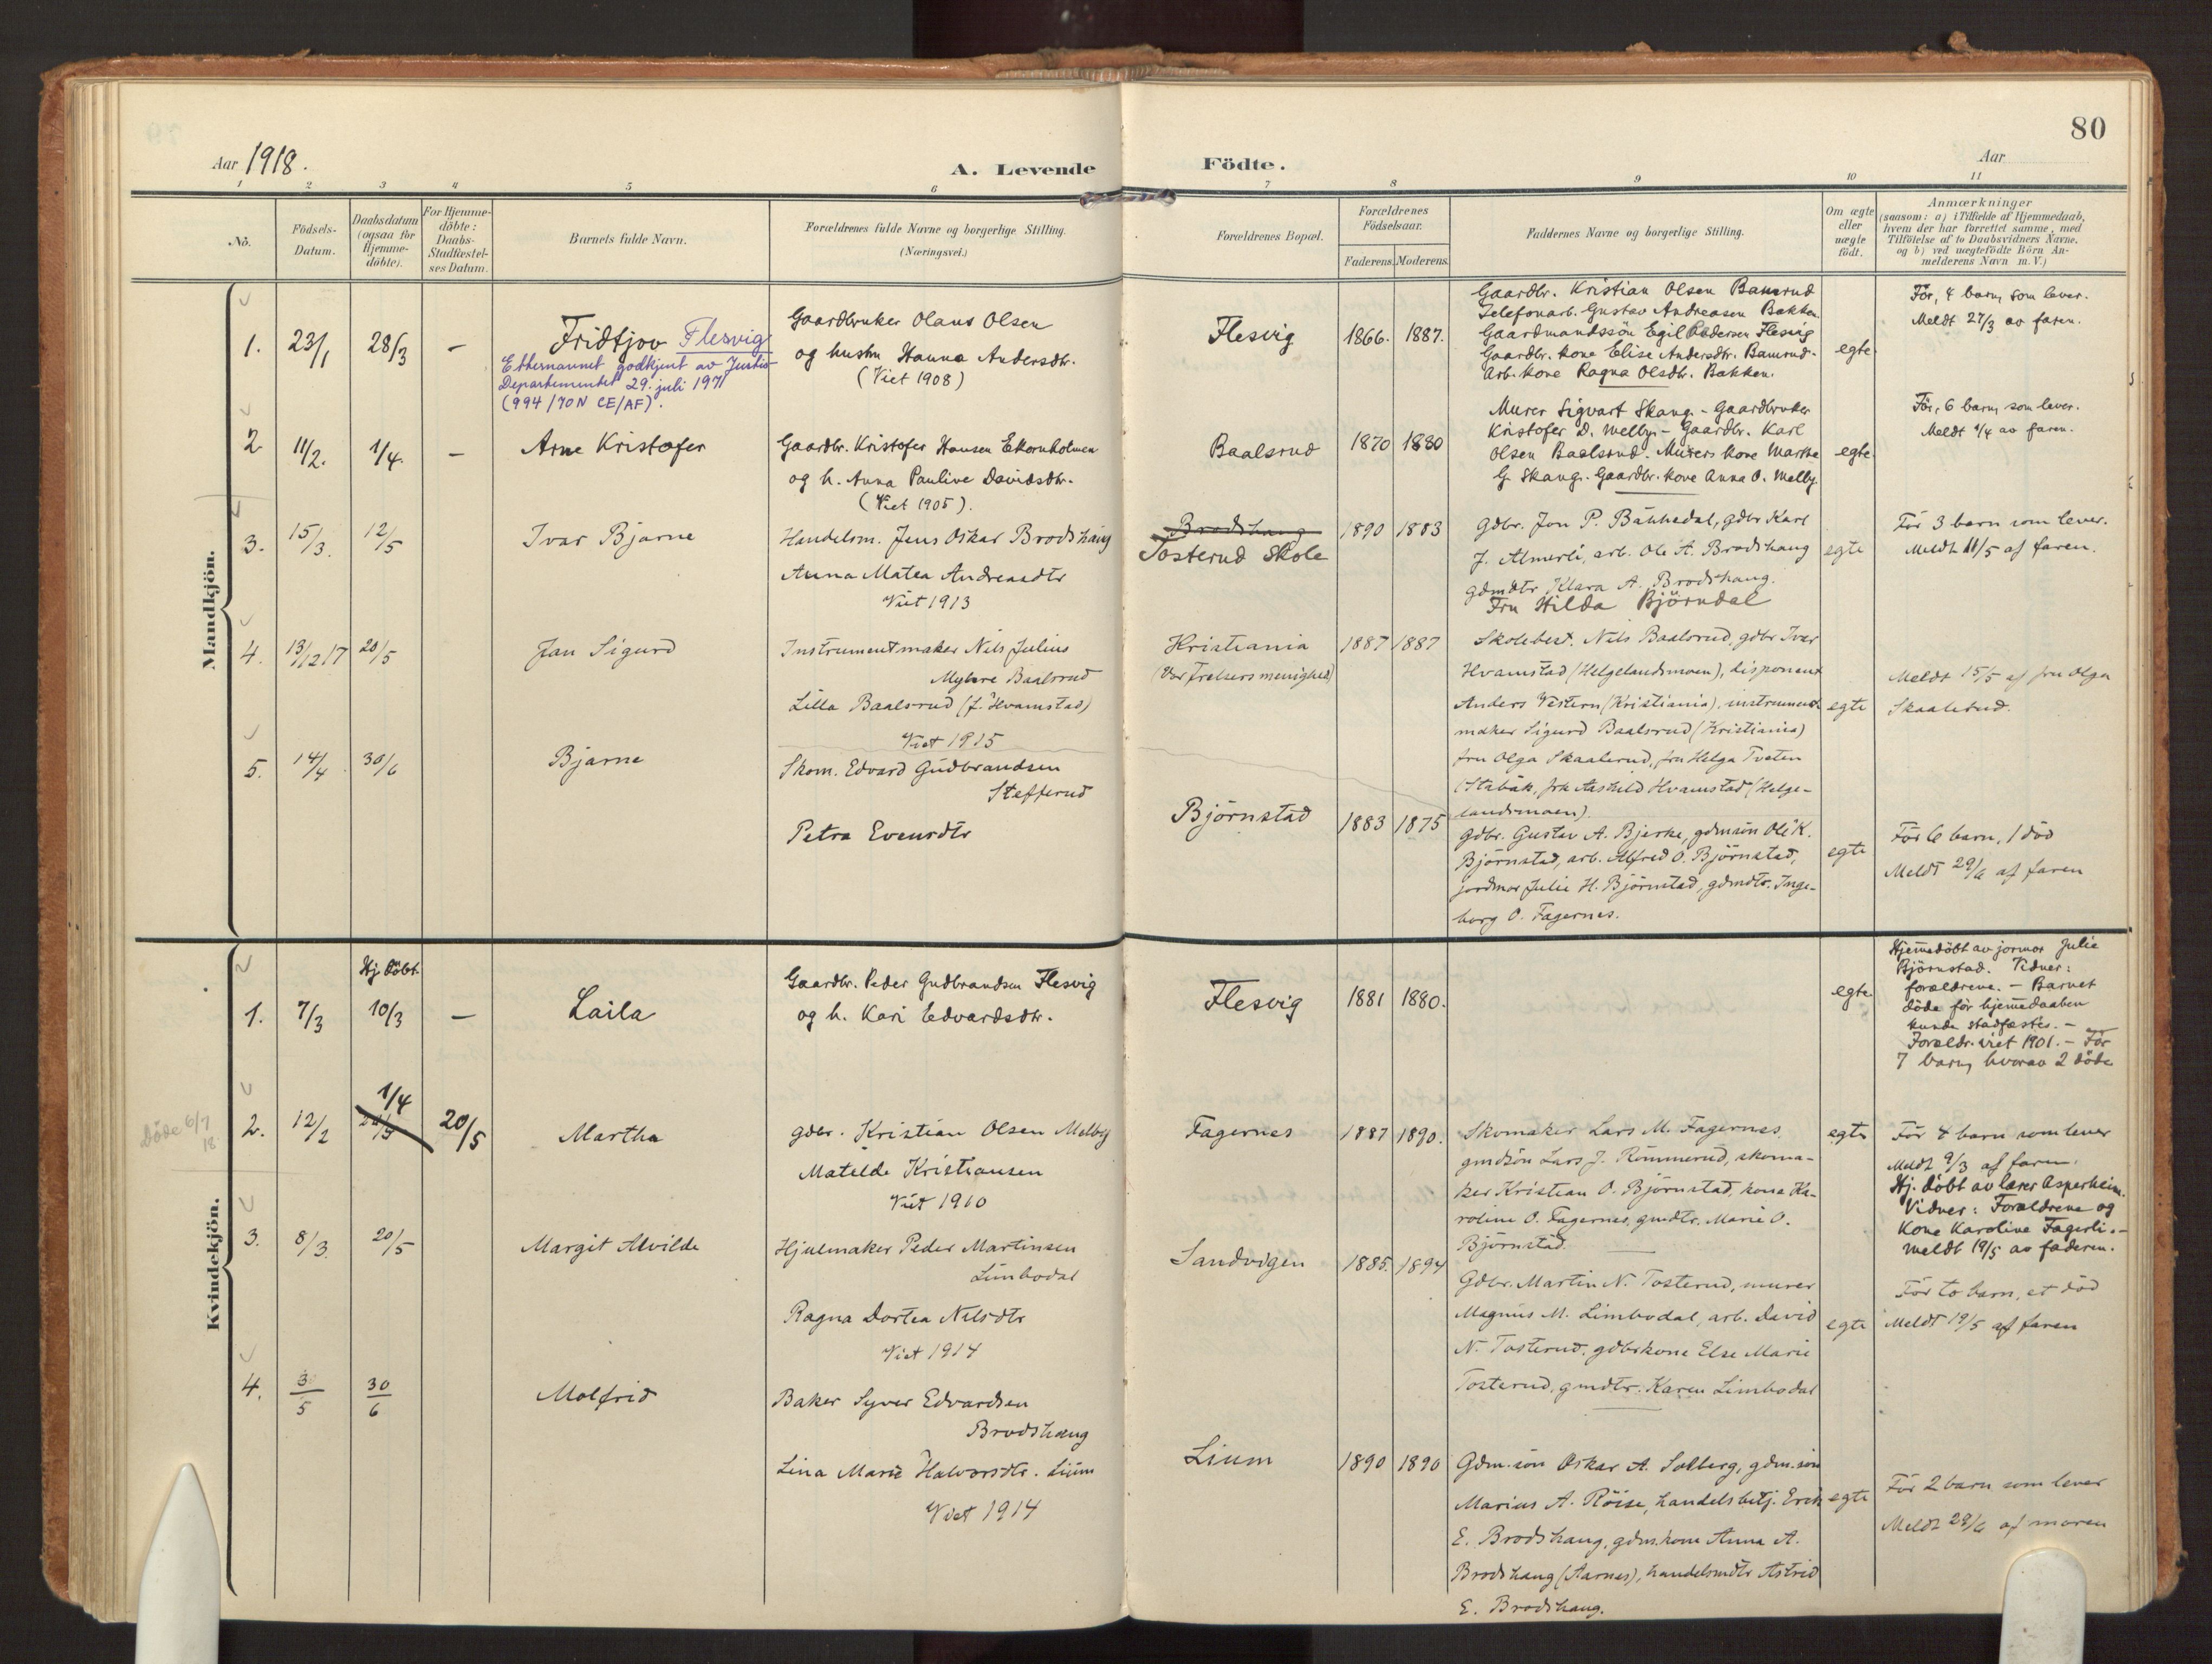 80
Aar 1918.
A. Levende
Födte.
Aar
1 2 3 4 5 6 7 8 9 10 11
No.
Födsels-
Datum.
Daabsdatum
(ogsaa for
Hjemme-
döbte).
For Hjemme-
döbte:
Daabs-
Stadfæstel-
ses Datum.
Barnets fulde Navn.
Forældrenes fulde Navne og borgerlige Stilling.
(Næringsvei.)
Forældrenes Bopæl.
Forældrenes
Födselsaar.
Faderens. Moderens.
Faddernes Navne og borgerlige Stilling.
Om ægte
eller
uægte
födt.
Anmærkninger
(saasom: a) i Tilfælde af Hjemmedaab,
hvem der har forrettet samme, med
Tilföielse af to Daabsvidners Navne.
og b) ved uægtefödte Börn An-
melderens Navn m. V.)
Mandkjön.
1. 23/1 28/3 —
Fridtjov Flesvig
Etternavnet godkjent av Justis-
Departementet 29. juli 1971
(994/70 N CE/AF).
Gaardbruker Olaus Olsen
og hustru Hanna Andersdtr.
(Viet 1908)
Flesvig
1866. 1887.
Gaardbr. Kristian Olsen Bamrud
Telefonarb. Gustav Andreasen Bakken
Gaardmandssön Egil Pedersen Flesvig
Gaardbr. kone Elise Andersdtr. Bamrud-
Arb. kone Ragna Olsdtr. Bakken.
egte.
För, 4 barn, som lever.
Meldt 27/3 av faren.
2. 11/2. 1/4. —
Arne Kristofer
Gaardbr. Kristofer Hansen Ekornholmen
og h. Anna Pauline Davidsdtr.
(Viet 1905).
Baalsrud
1870 1880
Murer Sigvart Skaug. - Gaardbruker
Kristofer D. Melby. - Gaardbr. Karl
Olsen Baalsrud. Murers kone Marthe
G. Skaug. Gaardbr. kone Anna O. Melby.
egte.
För, 6 barn, som lever.
Meldt 1/4 av faren.
3. 15/3. 12/5
Ivar Bjarne
Handelsm. Jens Oskar Brodshaug
Anna Matea Andreasdtr
Viet 1913
Brodshaug
Tosterud Skole
1890 1883
Gdbr. Jon P. Bähhedal, gdbr Karl
J. Almerli, arb. Ole A. Brodshaug
gdmdtr Klara A. Brodshaug.
Fru Hilda Björndal
egte
För 3 barn som lever.
Meldt 11/5 af faren.
4. 13/12 17 20/5
Jan Sigurd
Instrumentmaker Nils Julius
Myhre Baalsrud
Lilla Baalsrud (f. Hvamstad)
Viet 1915
Kristiania
(Vor Frelsers menighed)
1887 1887
Skolebest. Nils Baalsrud, gdbr Ivar
Hvamstad (Helgelandsmoen), disponent
Anders Vestern (Kristiania), instrument-
maker Sigurd Baalsrud (Kristiania)
fru Olga Skaalerud, fru Helga Tveten
(Stabäk, frk Aashild Hvamstad (Helge-
landsmoen).
egte
Meldt 15/5 af fru Olga
Skaalerud.
5. 14/4 30/6
Bjarne
Skom. Edvard Gudbrandsen
Stefferud
Petra Evensdtr
Björnstad
1883 1875
Gdbr. Gustav A. Bjerke, gdmsön Ole K.
Björnstad, arb. Alfred O. Björnstad,
jordmor Julie H. Björnstad, gdmdtr. Inge-
borg O. Fagernes.
egte
För 6 barn, 1 död
Meldt 29/6 af faren
Kvindekjön.
1. 7/3 Hj döbt 10/3 —
Laila
Gaardbr. Peder Gudbrandsen Flesvig
og h. Kari Edvardsdtr.
Flesvig
1881 1880.
egte.
Hjemmedöbt av jormor Julie
Björnstad. Vidner:
forældrene. - Barnet
döde för hjemmedaaben
kunde stadfæstes. -
Forældr. viet 1901. - För
7 barn, hvorav 2 döde
Döde 6/7
18
2. 12/2 1/4 20/5 20/5
Martha
gdbr. Kristian Olsen Melby
Matilde Kristiansen
Viet 1910
Fagernes
1887 1890.
Skomaker Lars M. Fagernes,
gmdsön Lars J. Römmerud, skoma-
ker Kristian O. Björnstad, kone Ka-
roline O. Fagernes, gmdtr. Marie O.
Björnstad.
egte
För 4 barn som lever
Meldt 9/3 af faren.
Hj. döbt av lærer Asperheim.
Vidner: Forældrene og
Kone Karoline Fagerli. -
meldt 19/5 av faderen.
3. 8/3. 20/5
Margit Alvilde
Hjulmaker Peder Martinsen
Limbodal
Ragna Dortea Nilsdtr
Viet 1914
Sandvigen
1885. 1894
Gdbr. Martin N. Tosterud, murer
Magnus M. Limbodal, arb. David
N. Tosterud. gdbrkone Else Marie
Tosterud, gmdtr. Karen Limbodal
egte
För to barn, et död
Meldt 19/5 af faren
4. 3/5 30/6
Molfrid
Baker Syver Edvardsen
Brodshaug
Lina Marie Halvorsdtr. Lium
Viet 1914
Lium
1890 1890
Gdm. sön Oskar A. Solberg, gdm. sön
Marius A. Röise, handelsbetj. Erik
E. Brodshaug, gdm. kone Anna A.
Brodshaug (Aarnes), handelsmdtr Astrid
E. Brodshaug.
egte
För 2 barn som lever
Meldt 29/6 af moren